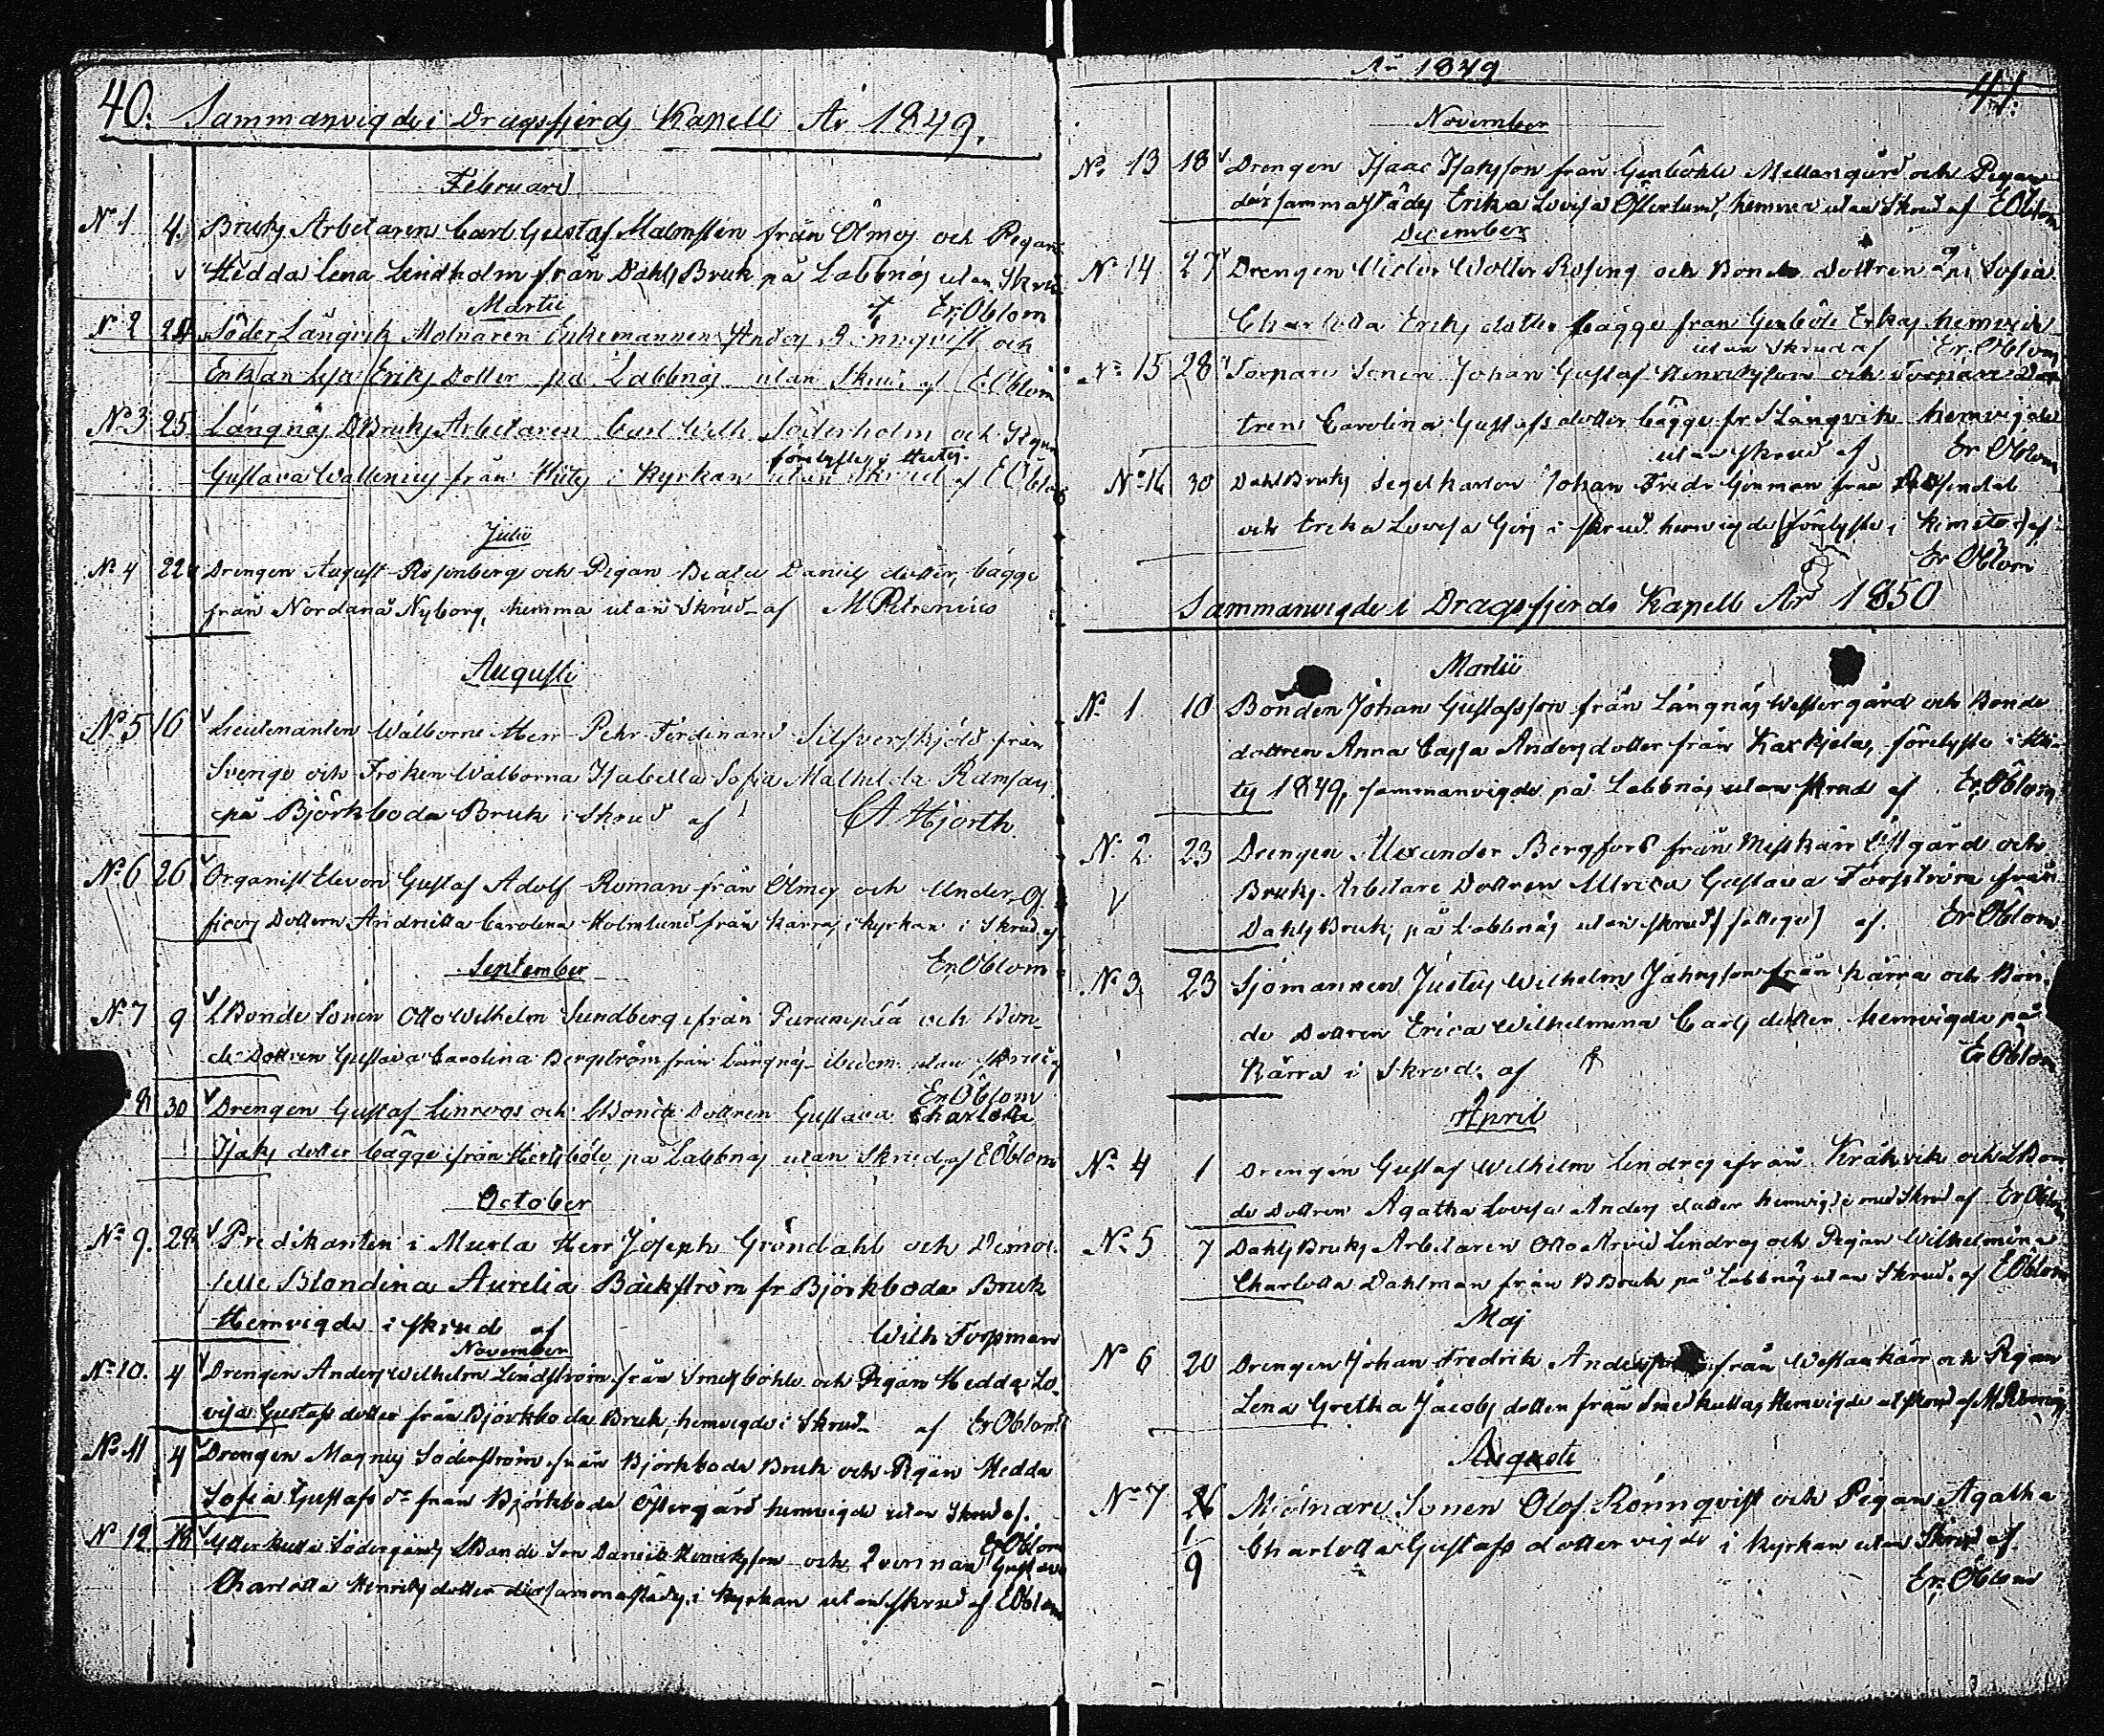 40. Sammanvigde i Dragsfjerds Kapell År 1849.
Februarii
No 1 4. Bruks Arbetaren Carl Gustaf Malmsten från Ölmos och Pigan
Hedda Lena Lindholm från Dahls Bruk på Labbnäs utan Skrud
af Er. Öblom
Martii
No 2 24 Söder Långvik Molnaren Enkemannen Anders Rönnqvist och
Enkan Lisa Eriks Dotter på Labbnäs utan Skrud af E Öblom
No 3 25 Långnäs DBruks Arbetaren Carl Wilh Söderholm och Pigan
förelyste i Hitis.
Gustava Wallenius från Hitis i Kyrkan utan Skrud af E Öblom
Julii
No 4 22 Drengen August Rosenberg och Pigan Beata Daniels dotter, bägge
från Nordanå Nyborg, hemma utan Skrud af M Petrenius
Augusti
No 5 16 Lieutenanten Wälborne Herr Pehr Ferdinand Silfverskjöld från
Sverige och Fröken Wälborna Isabella Sofia Mathilda Ramsay
på Björkboda Bruk i Skrud af CA Hjorth
No 6 26 Organist Eleven Gustaf Adolf Roman från Ölmos och Under Of
ficers Dottern Andrietta Carolina Holmlund från Kärra, i Kyrkan i Skrud af
Er Öblom
September
No 7 9 LBonde Sonen Otto Wilhelm Sundberg från Purunpää och Bon
de Dottren Gustava Carolina Bergström från Långnäs utan Skrud af
Er Öblom
8 30 Drengen Gustaf Linroos och LBonde Dottren Gustava Charlotta
Isaks dotter bägge från Hertsböle, på Labbnäs utan Skrud, af E Öblom
October
No 9. 28 Predikanten i Murla Herr Joseph Gröndahl och Demoi
selle Blondina Aurelia Bäckström fr Björkboda Bruk
Hemvigde i skrud af Wilh Forsman
November
No 10. 4 Drengen Anders Wilhelm Lindström från Smedsböhle och Pigan Hedda Lo
visa Gustafs dotter från Björkboda Bruk, hemvigde i Skrud af Er Öblom
No 11 4 Drengen Magnus Söderström från Björkboda Bruk och Pigan Hedda
Sofia Gustafs dr från Björkboda Östergård hemvigde utan Skrud af
Er Öblom
No 12 18 Ytterkulla Södergårds LBonde Son Daniel Henriksson och Qvinnan Gustava
Charlotta Henriks dotter dersammastädes, i Kyrkan utan skrud af E Öblom
År 1849
41.
November
No 13 18 Drengen Isaac Isaksson från Genböhle Mellangård och Pigan
dersammastädes Erika Lovisa Österlund, hemma utan Skrud af E Öblom
December
No 14 27 Drengen Victor Wolter Rosing och Bonde dottren Sofia
Charlotta Eriks dotter bägge från Genböle Erkas hemvigde
utan Skrud af Er. Öblom
No 15 28 Torpare Sonen Johan Gustaf Henriksson och Torpare Dot
tren Carolina Gustafs dotter bägge fr S Långvik hemvigde
utan skrud af Er Öblom
No 16 30 Dahls Bruks Segelkarlen Johan Fredr Ginman från Rosendal
och Erika Lovisa Grös i skrud hemvigde (förelyste i Kimito) af
Er Öblom
Sammanvigde i Dragsfjerds Kapell År 1850
Martii
No 1 10 Bonden Johan Gustafsson från Långnäs Westergård och Bonde
dottren Anna Cajsa Anders dotter från Kaxkjela, förelyste i Hi
tis 1849, sammanvigde på Labbnäs utan skrud af Er. Öblom
No 2 23 Drengen Alexander Bergfors från Misskärr Östgård och
Bruks Arbetare Dottren Ulrica Gustava Forsström från
Dahls Bruk, på Labbnäs utan skrud (fattige) af. Er Öblom
No 3 23 Sjömannen Justus Wilhelm Johansson från Kärra och Bon
de Dottren Erica Wilhelmina Carls dotter hemvigde på
Kärra i Skrud. af Er Öblom
April
No 4 1 Drengen Gustaf Wilhelm Lindros från Kråkvik och LBon
de Dottren Agatha Lovisa Anders dotter hemvigde med Skrud af Er Öblom
No 5 7 Dahls Bruks Arbetaren Otto Arvid Lindros och Pigan Wilhelmina
Charlotta Dahlman från D Bruk på Labbnäs utan Skrud. af E Öblom
Maj
No 6 20 Drengen Johan Fredrik Andersson från Westankärr och Pigan
Lena Gretha Jacobs dotter från Smedkulla, Hemvigde ut skrud af M Petrenius
Augusti
No 7 26 Mjölnare Sonen Olof Rönnqvist och Pigan Agatha
1/9 Charlotta Gustafs dotter vigde i Kyrkan utan Skrud af
Er. Öblom